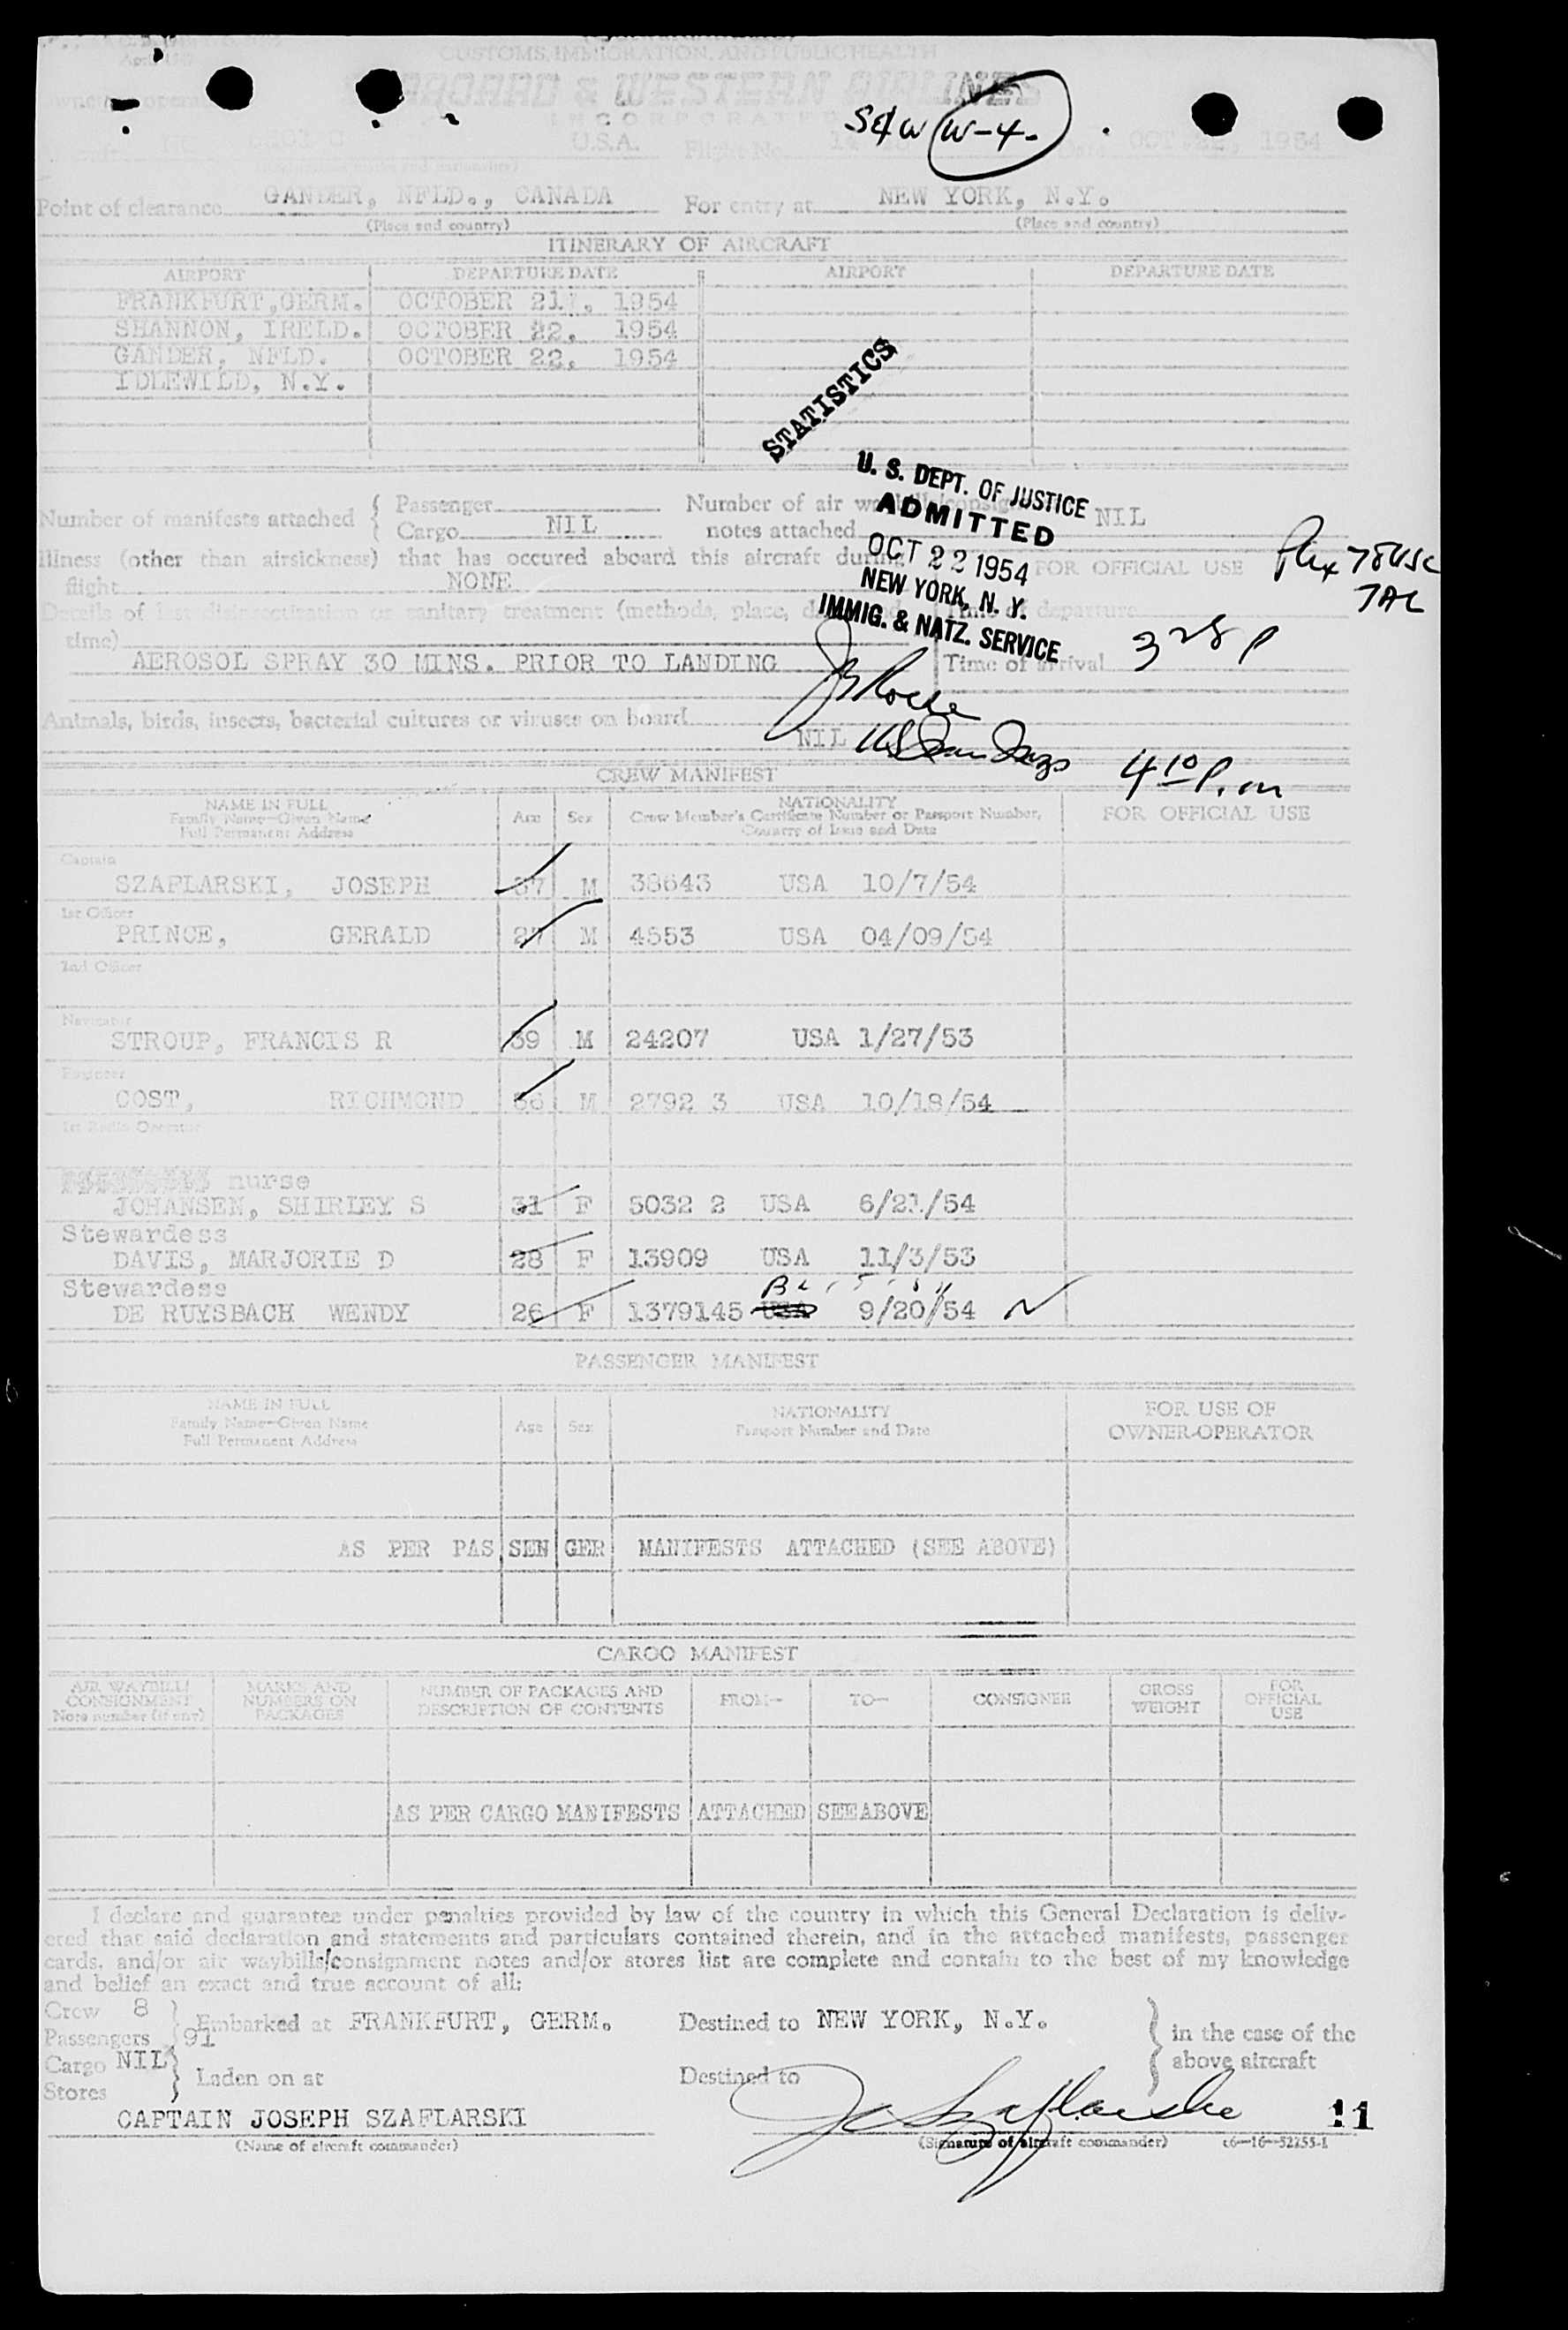 CUSTOMS, IMMIGRATION, AND PUBLIC HEALTH
SEABOARD & WESTERN AIRLINES
INCORPORATED
S&W W-4-
U.S.A. Flight No. 14 Date OCT. 22, 1954
Point of clearance GANDER, NFLD., CANADA For entry at NEW YORK, N.Y.
(Place and country) (Place and country)
ITINERARY OF AIRCRAFT
AIRPORT DEPARTURE DATE AIRPORT DEPARTURE DATE
FRANKFURT, GERM. OCTOBER 21, 1954
SHANNON, IRELD. OCTOBER 22, 1954
GANDER, NFLD. OCTOBER 22, 1954
IDLEWILD, N.Y.
STATISTICS
U. S. DEPT. OF JUSTICE
ADMITTED
OCT 22 1954
NEW YORK, N. Y.
IMMIG. & NATZ. SERVICE
Number of manifests attached { Passenger Number of air waybills/consignment
Cargo NIL notes attached NIL
Illness (other than airsickness) that has occured aboard this aircraft during FOR OFFICIAL USE
flight NONE
Details of last disinsectization or sanitary treatment (methods, place, date and Time of departure
time)
AEROSOL SPRAY 30 MINS. PRIOR TO LANDING Time of arrival 3 28 P
Animals, birds, insects, bacterial cultures or viruses on board
NIL
4 10 P.m
CREW MANIFEST
NAME IN FULL
Family Name—Given Name
Full Permanent Address
Age Sex
NATIONALITY
Crew Member's Certificate Number or Passport Number,
Country of Issue and Date
FOR OFFICIAL USE
Captain
SZAFLARSKI, JOSEPH 37 M 38643 USA 10/7/54
1st Officer
PRINCE, GERALD 27 M 4553 USA 04/09/54
2nd Officer
Navigator
STROUP, FRANCIS R 39 M 24207 USA 1/27/53
Engineer
COST, RICHMOND 36 M 2792 3 USA 10/18/54
1st Radio Operator
nurse
JOHANSEN, SHIRLEY S 31 F 5032 2 USA 6/21/54
Stewardess
DAVIS, MARJORIE D 28 F 13909 USA 11/3/53
Stewardess
DE RUYSBACH WENDY 26 F 1379145 USA 9/20/54
PASSENGER MANIFEST
NAME IN FULL
Family Name—Given Name
Full Permanent Address
Age Sex
NATIONALITY
Passport Number and Date
FOR USE OF
OWNER-OPERATOR
AS PER PASSENGER MANIFESTS ATTACHED (SEE ABOVE)
CARGO MANIFEST
AIR WAYBILL/
CONSIGNMENT
Note number (if any)
MARKS AND
NUMBERS ON
PACKAGES
NUMBER OF PACKAGES AND
DESCRIPTION OF CONTENTS
FROM— TO— CONSIGNEE
GROSS
WEIGHT
FOR
OFFICIAL
USE
AS PER CARGO MANIFESTS ATTACHED SEE ABOVE
I declare and guarantee under penalties provided by law of the country in which this General Declaration is deliv-
ered that said declaration and statements and particulars contained therein, and in the attached manifests, passenger
cards, and/or air waybills/consignment notes and/or stores list are complete and contain to the best of my knowledge
and belief an exact and true account of all:
Crew 8
Passengers 91 Embarked at FRANKFURT, GERM. Destined to NEW YORK, N.Y. in the case of the
Cargo NIL above aircraft
Stores Laden on at Destined to
CAPTAIN JOSEPH SZAFLARSKI 11
(Name of aircraft commander) (Signature of aircraft commander) 16—16—52255-1